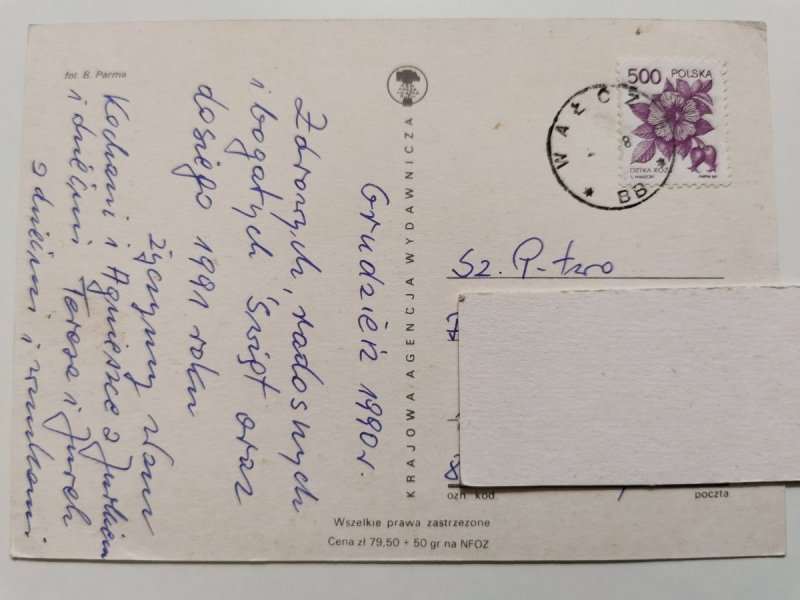 fot. B. Parma
Grudzień 1990 r.
Zdrowych, radosnych
i bogatych Świąt oraz
dosiego 1991 roku
życzymy Wam
Kochani i Agnieszce z Jurkiem
i dziećmi Teresa i Jurek
z dziećmi i wnukami
KRAJOWA AGENCJA WYDAWNICZA
500 POLSKA
DZIKA RÓŻA
WAŁCZ
BB
Sz. P-two
ozn. kod.
poczta
Wszelkie prawa zastrzeżone
Cena zł 79,50 + 50 gr na NFOZ